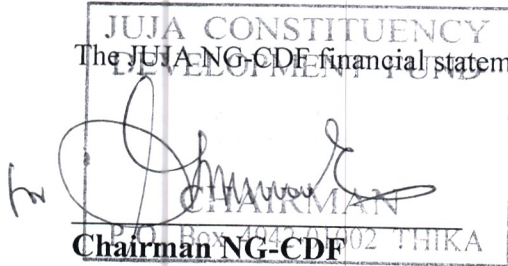 JUJA CONSTITUENCY
The JUJA NG-CDF financial statem
DEVELOPMENT FUND
for
CHAIRMAN
P.O. Box 4043-01002 THIKA
Chairman NG-CDF